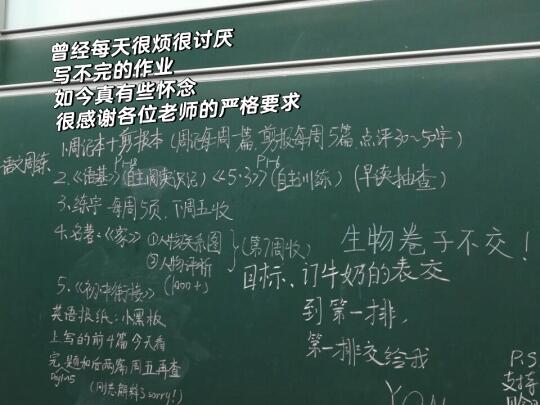 曾经每天很烦很讨厌
写不完的作业
如今真有些怀念
很感谢各位老师的严格要求
语文周练
1.周记本+剪报本(周记每周一篇,剪报每周5篇,点评30~50字)
2.《语基》(自主阅读识记)《5·3》(自主训练)(早读抽查)
P1-6
3.练字 每周5页,下周五收
4.名著:《家》①人物关系图
②人物评析
(第7周收)
5.《初中衔接》(1000+)
英语报纸:小黑板
上写的前4篇今天看
完,题和后两篇周五再查
(刚忘解释了sorry!)
生物卷子不交!
目标、订牛奶的表交
到第一排,
第一排交给我
P.S
支持